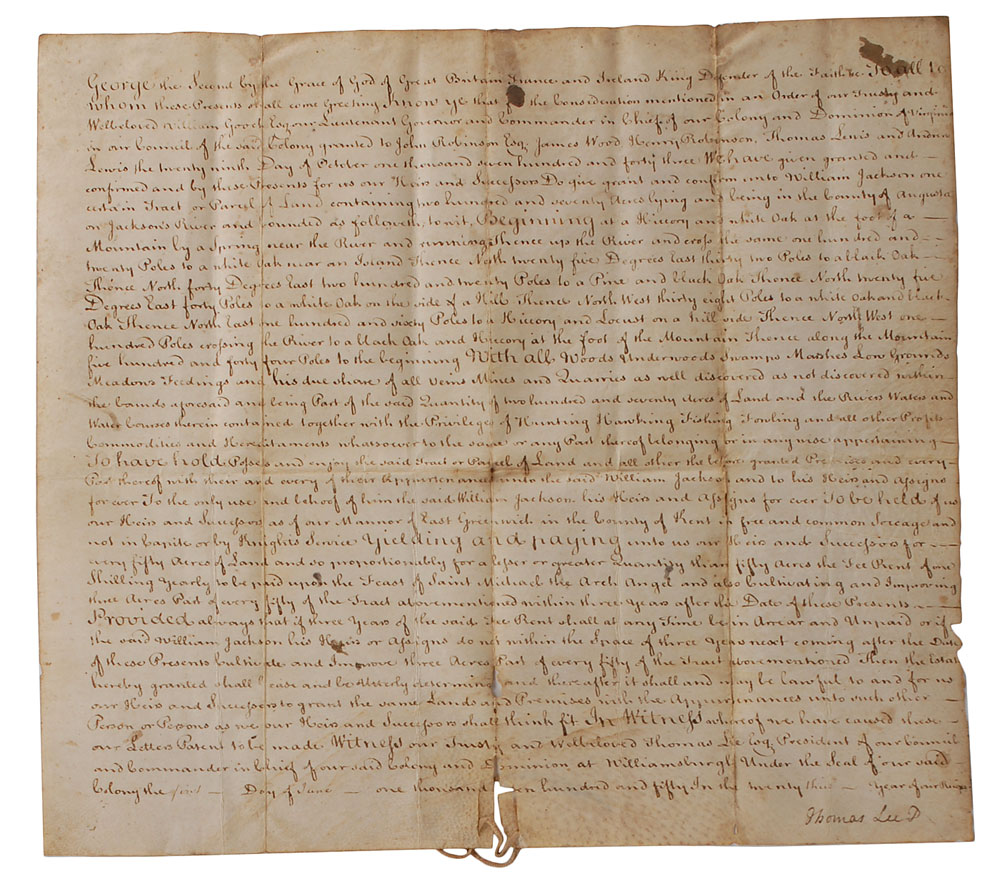 George the Second by the Grace of God of Great Britain France and Ireland King Defender of the Faith &c To all to
whom these Presents shall come Greeting Know ye that for the Consideration mentioned in an Order of our Trusty and
Welbeloved William Gooch Esq our Lieutenant Governor and Commander in Chief of our Colony and Dominion of Virginia
in our Council of the said Colony granted to John Robinson Esq James Wood Henry Robinson, Thomas Lewis and Andrew
Lewis the twenty ninth Day of October one thousand seven hundred and forty three We have given granted and
confirmed and by these Presents for us our Heirs and Successors Do give grant and confirm unto William Jackson one
certain Tract or Parcel of Land containing two hundred and seventy Acres lying and being in the County of Augusta
on Jackson's River and bounded as followeth towit, Beginning at a Hiccory and white Oak at the foot of a
Mountain by a Spring near the River and runing thence up the River and cross the same one hundred and
twenty Poles to a white Oak near an Island Thence North twenty five Degrees East thirty two Poles to a black Oak
Thence North forty Degrees East two hundred and twenty Poles to a Pine and black Oak Thence North twenty five
Degrees East forty Poles to a white Oak on the side of a Hill Thence North West thirty eight Poles to a white Oak and black
Oak Thence North East one hundred and sixty Poles to a Hiccory and Locust on a hill side Thence North West one
hundred Poles crossing the River to a black Oak and Hiccory at the foot of the Mountain Thence along the Mountain
five hundred and forty four Poles to the beginning With all Woods Underwoods Swamps Mashes Low Grounds
Meadows Feedings and his due share of all Veins Mines and Quarries as well discovered as not discovered within
the bounds aforesaid and being Part of the said Quantity of two hundred and seventy Acres of Land and the Rivers Waters and
Water Courses therein contained together with the Privileges of Hunting Hawking Fishing Fowling and all other Profits
Commodities and Hereditaments whatsoever to the same or any Part thereof belonging or in any wise appertaining
To have hold Possess and enjoy the said Tract or Parcel of Land and all other the before granted Premises and every
Part thereof with their and every of their Appurtenances unto the said William Jackson and to his Heirs and Assigns
for ever To the only use and behoof of him the said William Jackson his Heirs and Assigns for ever To be held of us
our Heirs and Successors as of our Mannor of East Greenwich in the County of Kent in free and common Soccage and
not in Capite or by Knights Service Yielding and paying unto us our Heirs and Successors for
every fifty Acres of Land and so proportionably for a lesser or greater Quantity than fifty Acres the Fee Rent of one
Shilling Yearly to be paid upon the Feast of Saint Michael the Arch Angel and also Cultivating and Improving
three Acres Part of every fifty of the Tract abovementioned within three Years after the Date of these Presents
Provided always that if three Years of the said Fee Rent shall at any Time be in Arrear and Unpaid or if
the said William Jackson his Heirs or Assigns do not within the Space of three Years next coming after the Date
of these Presents Cultivate and Improve three Acres Part of every fifty of the Tract abovementioned Then the Estate
hereby granted shall cease and be Utterly determined and thereafter it shall and may be lawful to and for us
our Heirs and Successors to grant the same Lands and Premises with the Appurtenances unto such other
Person or Persons as we our Heirs and Successors shall think fit In Witness whereof we have caused these
our Letters Patent to be made Witness our Trusty and Welbeloved Thomas Lee Esq, President of our Council
and Commander in Chief of our said Colony and Dominion at Williamsburgh Under the Seal of our said
Colony the first Day of June one thousand seven hundred and fifty In the twenty third Year of our Reign
Thomas Lee P